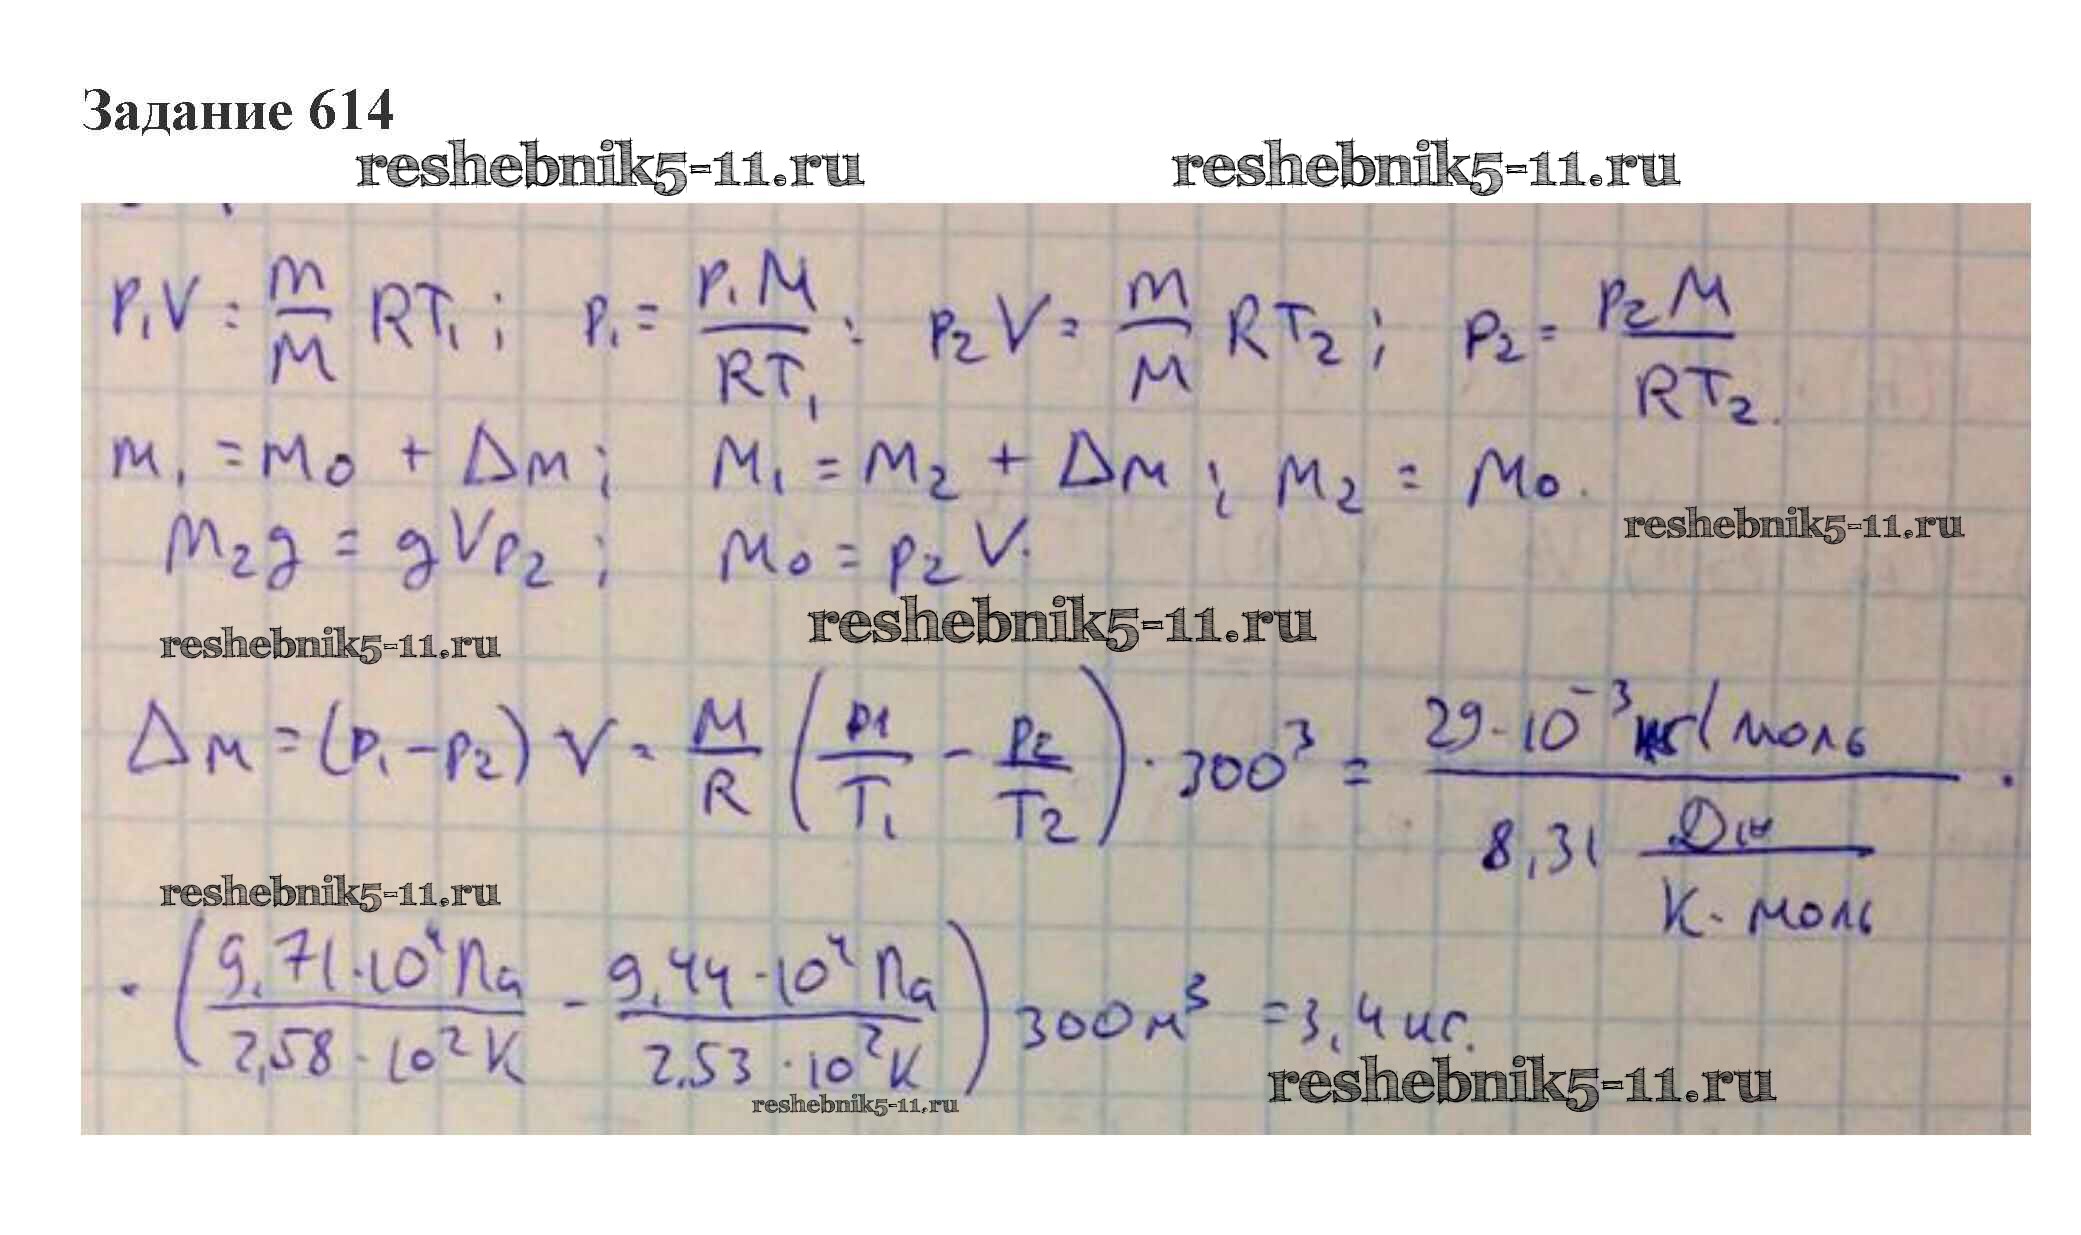 Задание 614
reshebnik5-11.ru reshebnik5-11.ru
p₁V = m/M RT₁; p₁ = p₁M/RT₁; p₂V = m/M RT₂; p₂ = p₂M/RT₂.
m₁ = m₀ + Δm; m₁ = m₂ + Δm; m₂ = m₀.
reshebnik5-11.ru
m₂g = gVp₂; m₀ = p₂V.
reshebnik5-11.ru reshebnik5-11.ru
Δm = (p₁ - p₂) V = M/R (p1/T₁ - p₂/T₂) · 300³ = 29·10⁻³ кг/моль / 8,31 Дж/К·моль ·
reshebnik5-11.ru
· (9,71·10⁴ Па / 2,58·10² К - 9,44·10⁴ Па / 2,53·10² К) 300 м³ = 3,4 кг.
reshebnik5-11.ru reshebnik5-11.ru